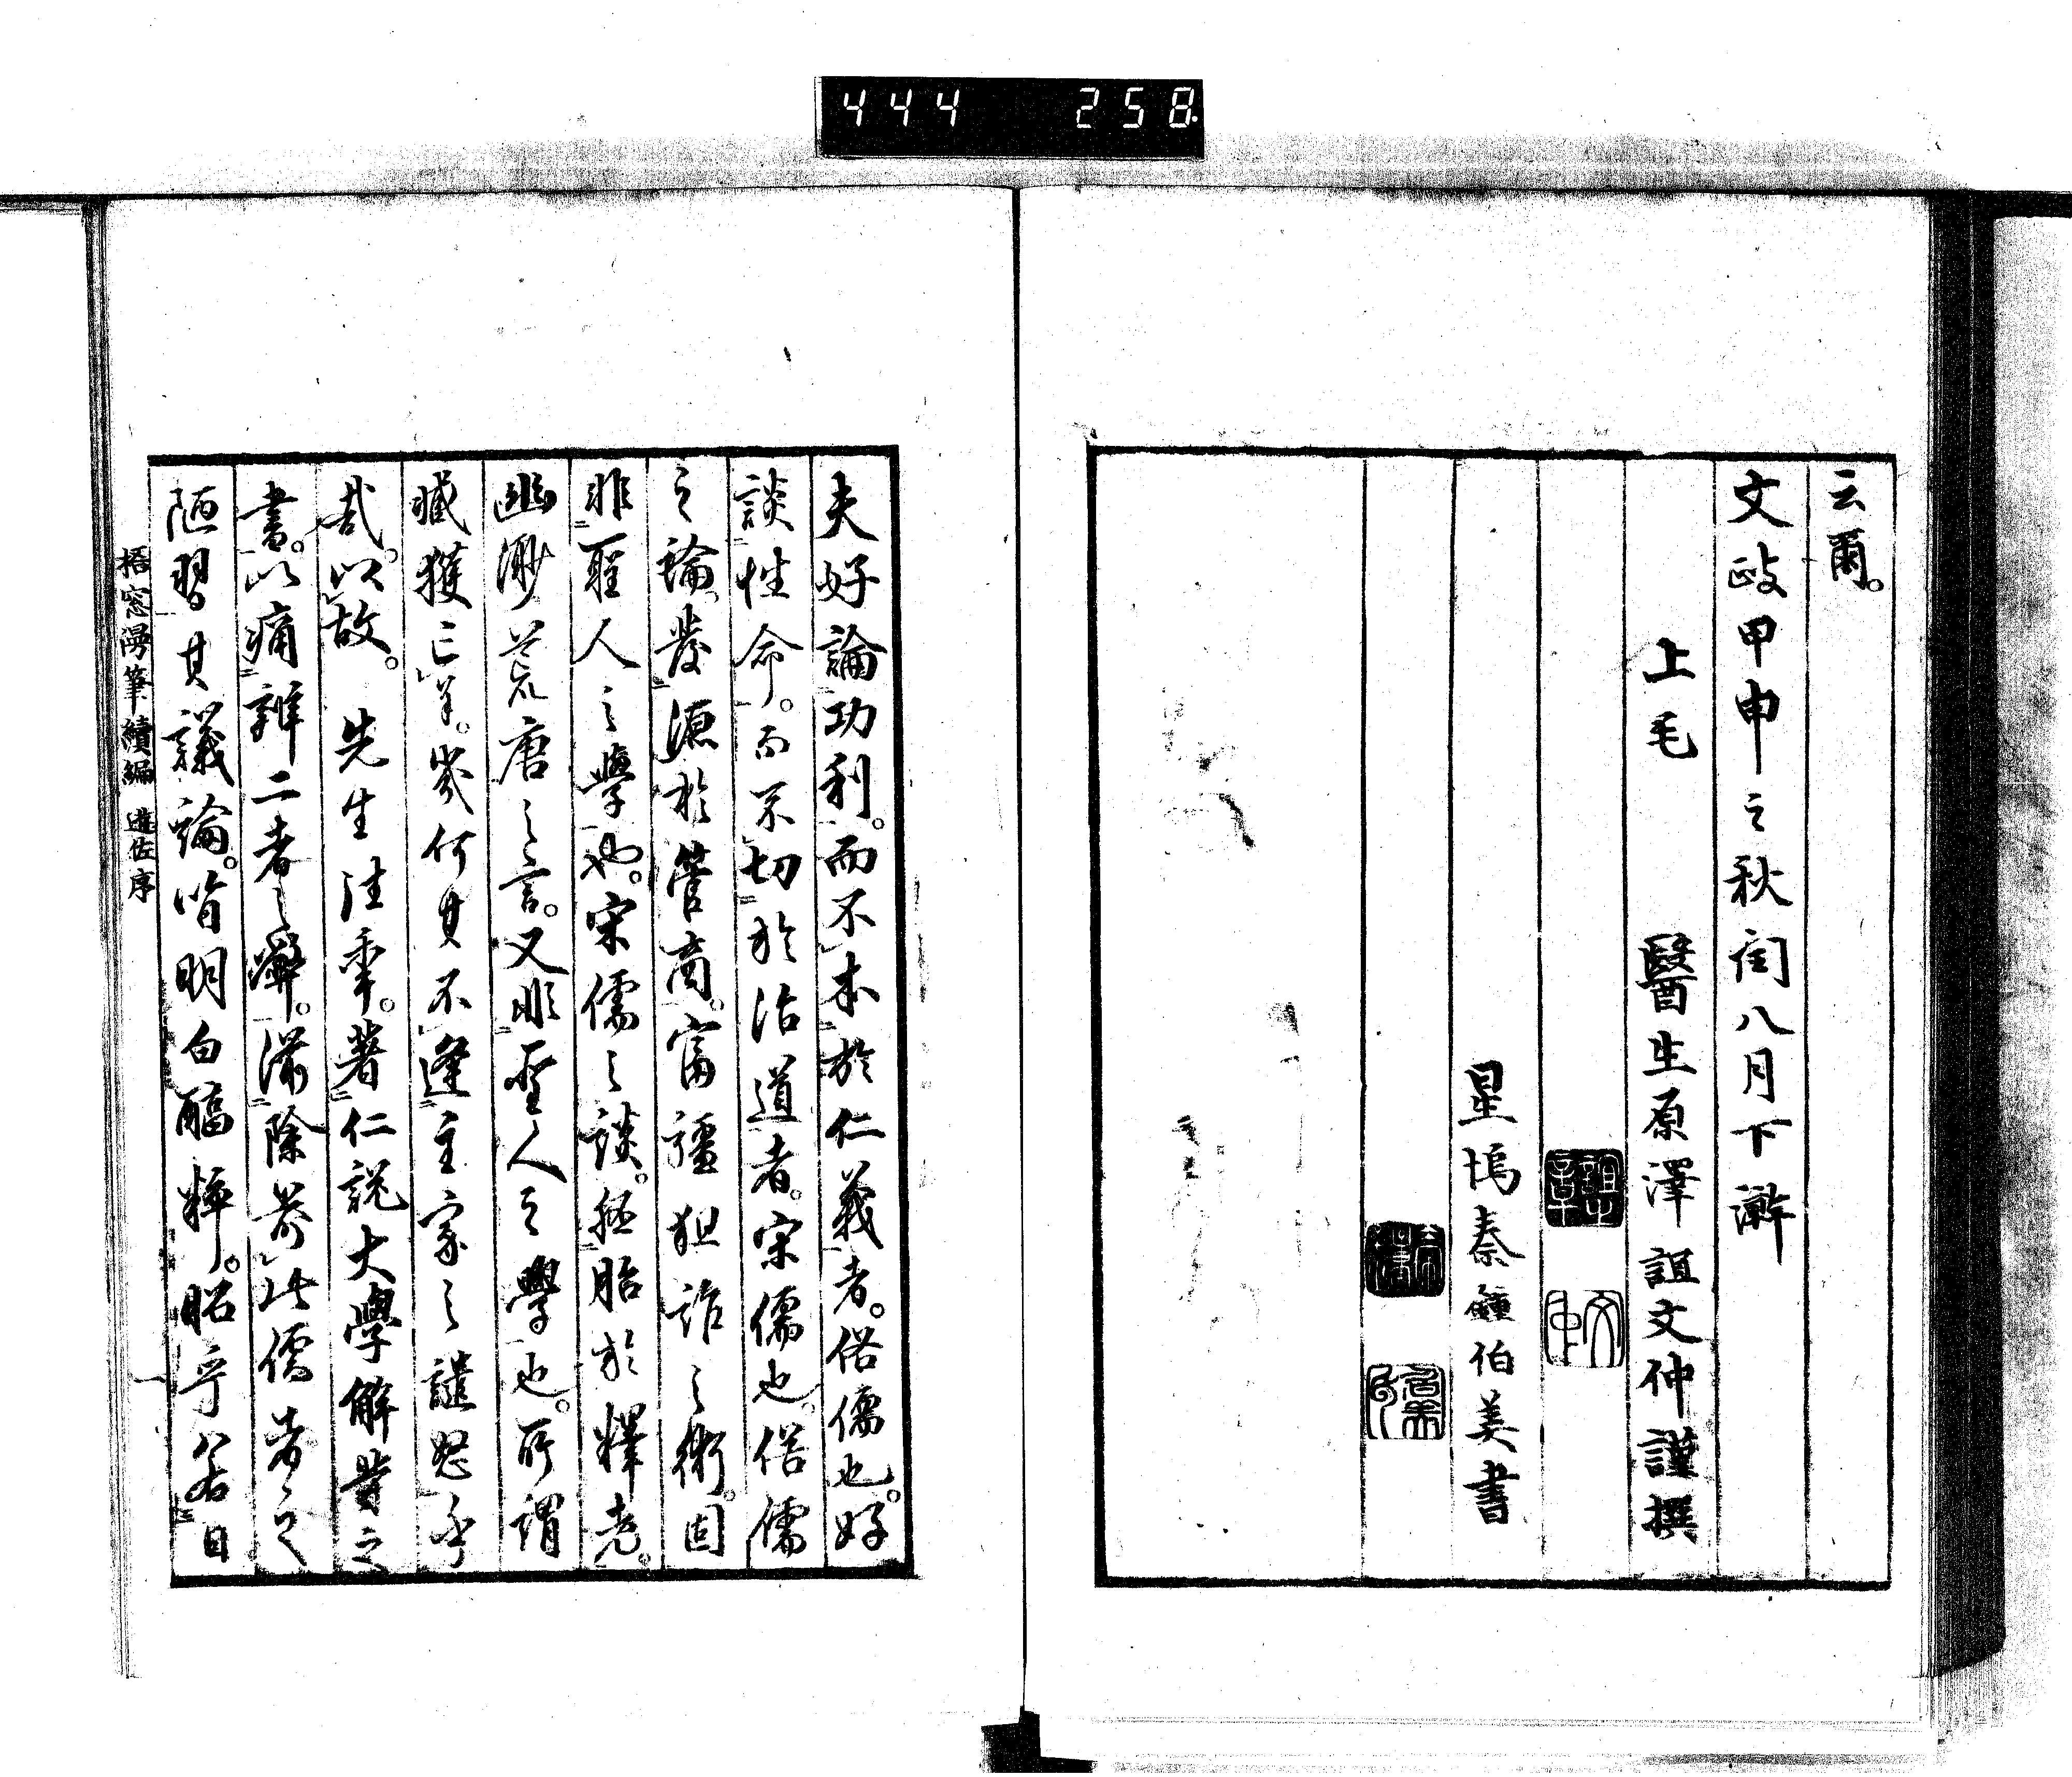 444 258
云爾。
文政甲申之秋閏八月下澣
上毛 醫生原澤誼文仲謹撰
星塢秦鍾伯美書
夫好論功利。而不本於仁義者。俗儒也。好
談性命。而不切於治道者。宋儒也。俗儒
之論。發源於管商。富彊狙詐之術。固
非聖人之學也。宋儒之談。胚胎於釋老。
幽渺荒唐之言。又非聖人之學也。所謂
臧獲亡羊。幾何其不逢主家之譴怒乎
哉。以故。先生注車。著仁說大學解等之
書。以痛辨二者之弊。滌除此儒者之
陋習。其議論。皆明白醞粹。昭乎若日
梧窓漫筆續編 進佐序 一